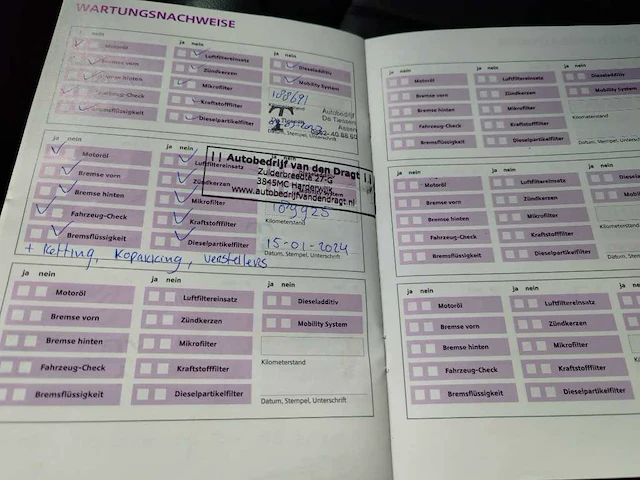 WARTUNGSNACHWEISE
ja nein
Motoröl
Bremse vorn
Bremse hinten
Fahrzeug-Check
Bremsflüssigkeit
ja nein
Luftfiltereinsatz
Zündkerzen
Mikrofilter
Kraftstofffilter
Dieselpartikelfilter
ja nein
Dieseladditiv
Mobility System
188691
Autobedrijf
De Tiessen
Assen
Datum, Stempel, Unterschrift
ja nein
Motoröl
Bremse vorn
Bremse hinten
Fahrzeug-Check
Bremsflüssigkeit
Luftfiltereinsatz
Zündkerzen
Mikrofilter
Kraftstofffilter
Dieselpartikelfilter
Autobedrijf van den Dragt
Zuiderbreedte 27-d
3845MC Harderwijk
www.autobedrijfvandendragt.nl
Kilometerstand
15-01-2024
Datum, Stempel, Unterschrift
+ ketting, kopakking, verstellers
ja nein
Motoröl
Bremse vorn
Bremse hinten
Fahrzeug-Check
Bremsflüssigkeit
ja nein
Luftfiltereinsatz
Zündkerzen
Mikrofilter
Kraftstofffilter
Dieselpartikelfilter
ja nein
Dieseladditiv
Mobility System
Kilometerstand
Datum, Stempel, Unterschrift
ja nein
Motoröl
Bremse vorn
Bremse hinten
Fahrzeug-Check
Bremsflüssigkeit
ja nein
Luftfiltereinsatz
Zündkerzen
Mikrofilter
Kraftstofffilter
Dieselpartikelfilter
ja nein
Dieseladditiv
Mobility System
Kilometerstand
Datum, Stempel,
ja nein
Motoröl
Bremse vorn
Bremse hinten
Fahrzeug-Check
Bremsflüssigkeit
ja nein
Luftfiltereinsatz
Zündkerzen
Mikrofilter
Kraftstofffilter
Dieselpartikelfilter
ja nein
Dieseladditiv
Mobility
Kilometerstand
Datum,
ja nein
Motoröl
Bremse vorn
Bremse hinten
Fahrzeug-Check
Bremsflüssigkeit
ja nein
Luftfiltereinsatz
Zündkerzen
Mikrofilter
Kraftstofffilter
Dieselpartikelfilter
ja